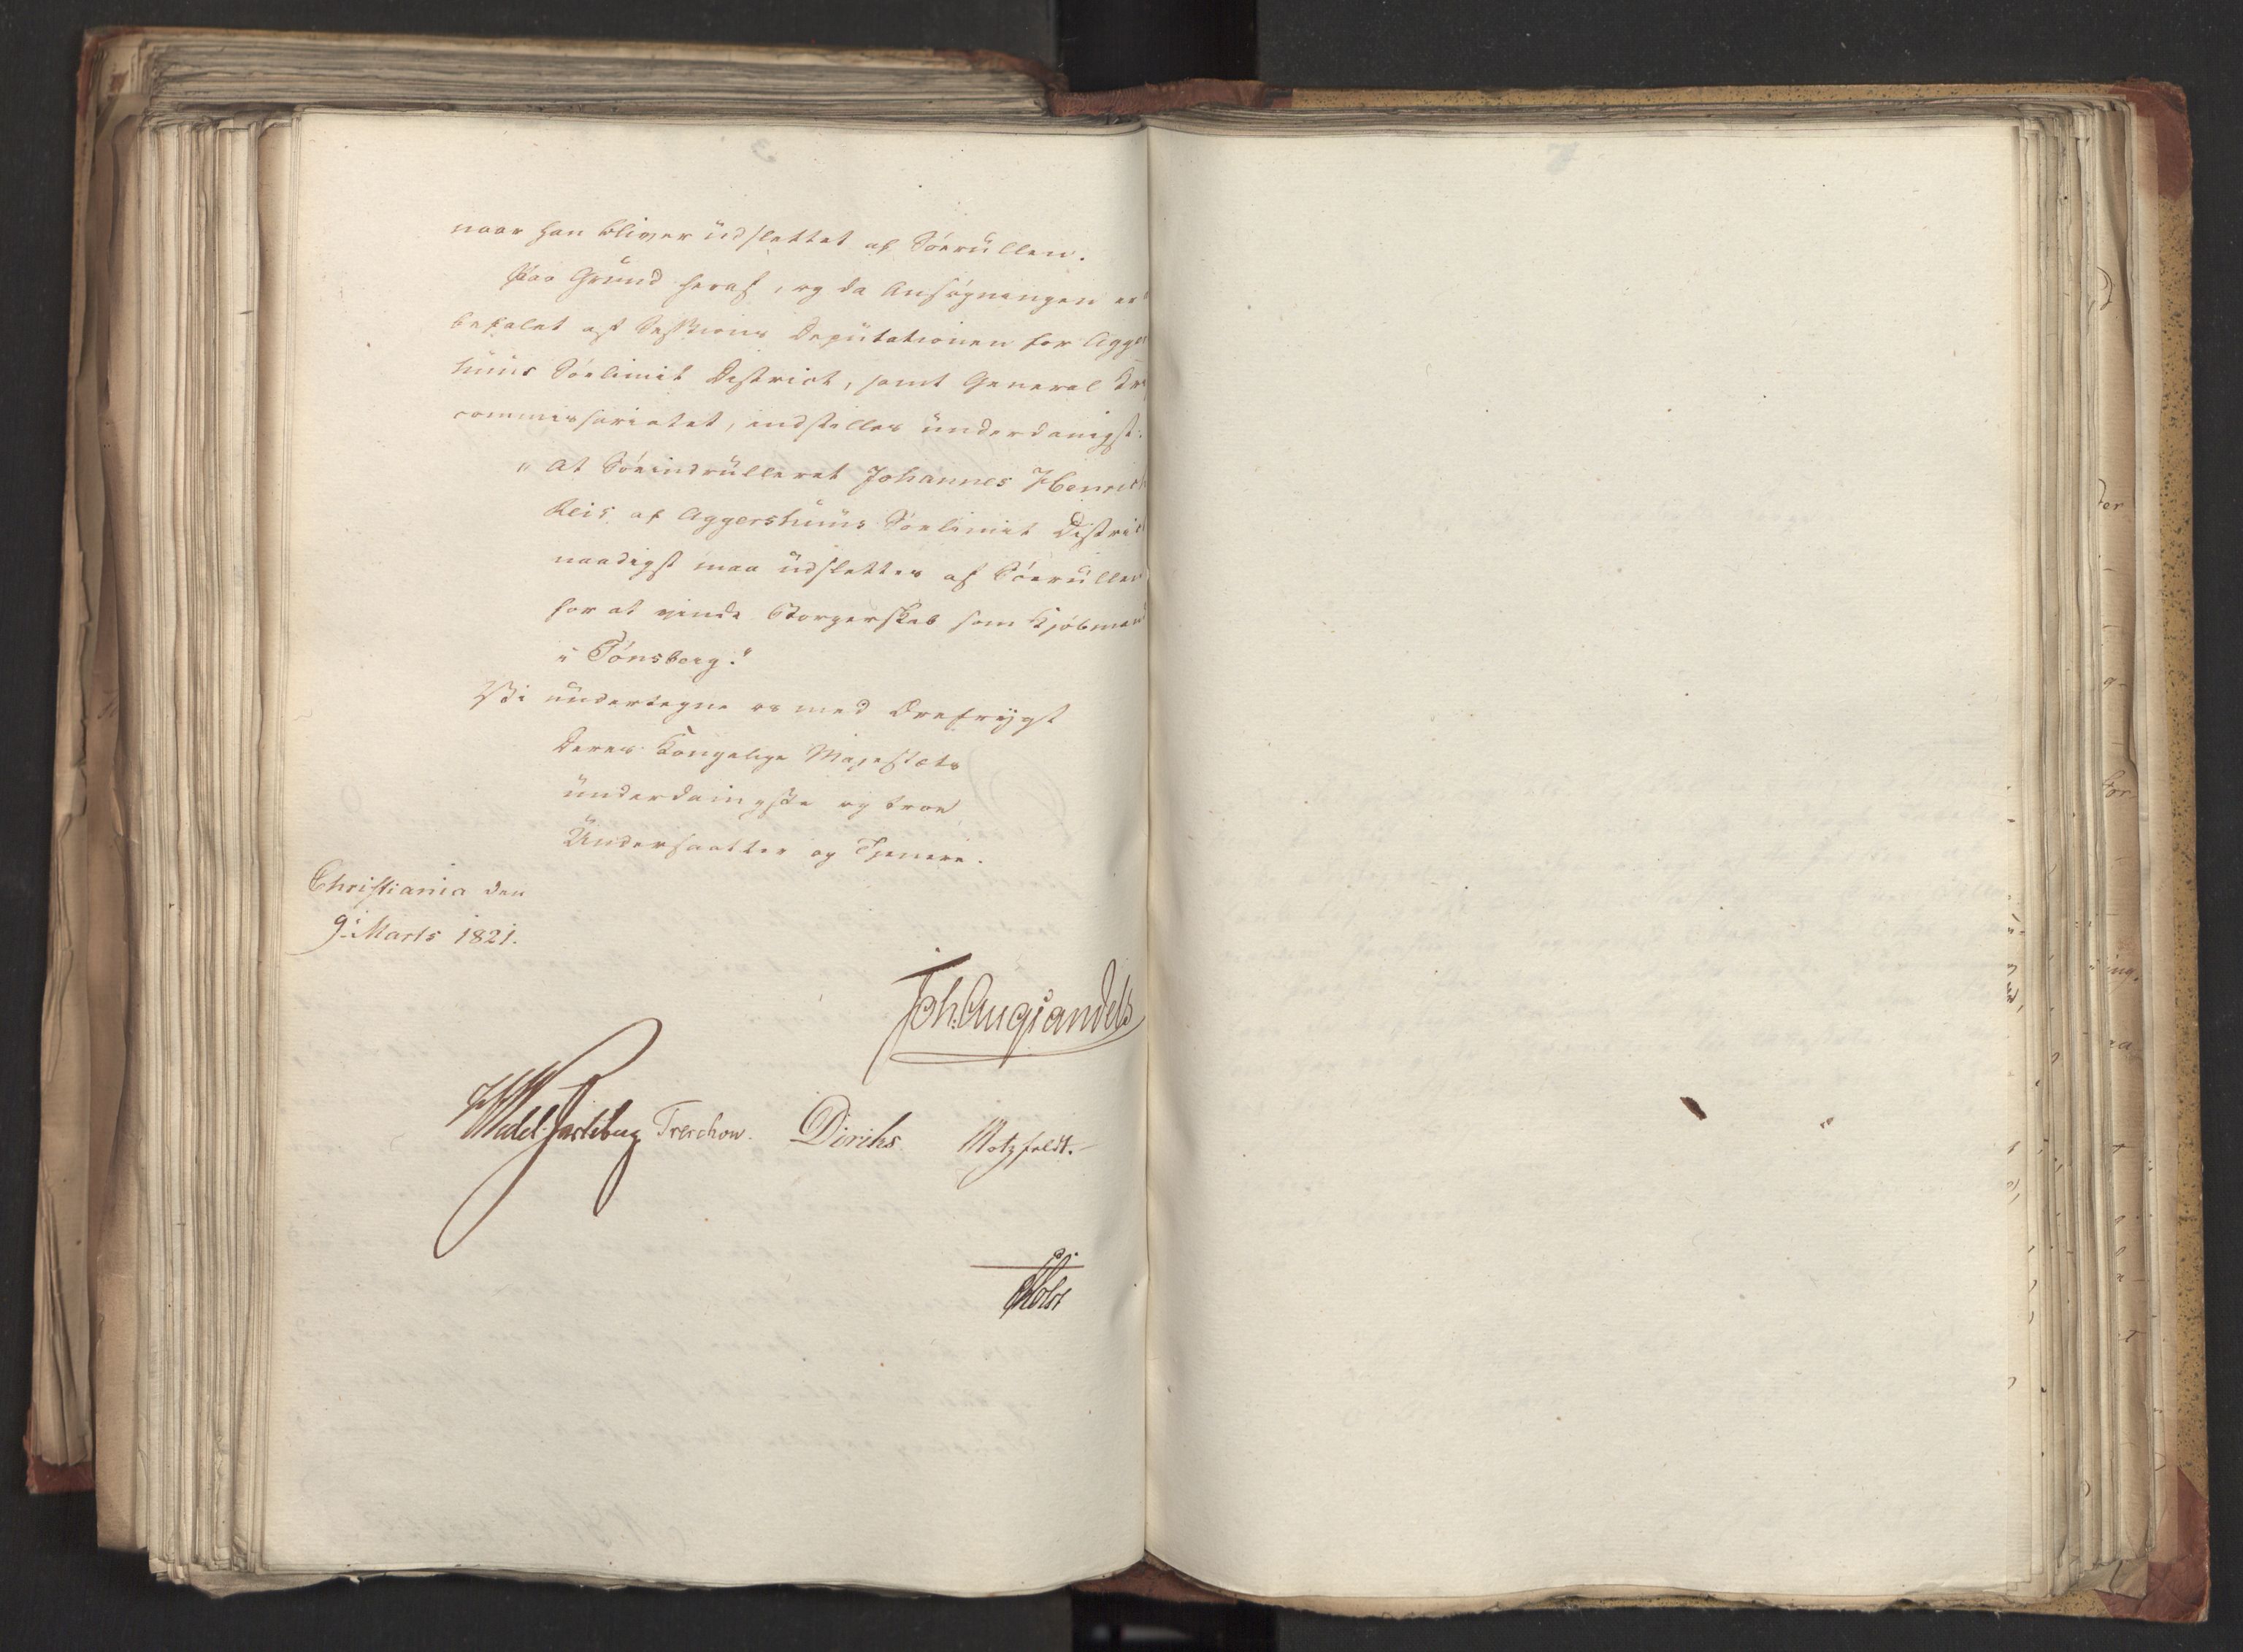 naar han bliver üdslettet af Sörrüllen.
Paa Grund heraf, og da Ansøgningen er
befalet af Sessions Depütationen for Agger
hüüs Söelimit District, samt General Kr
commissariatet, indstilles ünderdanigst:
"At Söeindrülleret Johannes Henrich
Reis af Aggershüüs Söelimit District
naadigst maa üdslettes af Söerüllen
for at vinde Borgerskab som Kjöbmand
i Tönsberg."
Vi ündertegne os med Ærefrygt
Deres Kongelige Majestæts
ünderdanigste og troe
Ündersaatter og Tjenere.
Christiania den
9. Marts 1821.
Joh. Aug Sandels
HWedel Jarlsberg Treschow. Diriks Motzfeldt.
Holst